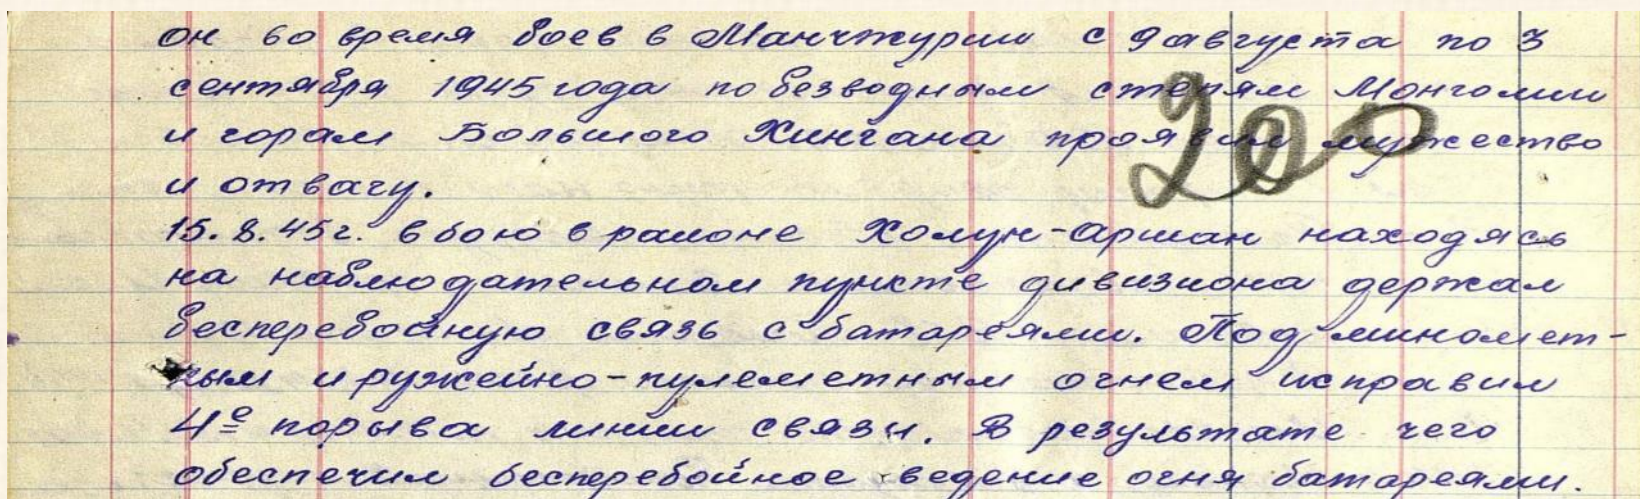 он во время боев в Манчжурии с 9 августа по 3
сентября 1945 года по безводным степям Монголии
и горам Большого Хингана проявил мужество
и отвагу.
200
15.8.45г. в бою в районе Холун-Аршан находясь
на наблюдательном пункте дивизиона держал
бесперебойную связь с батареями. Под миномет-
ным и ружейно-пулеметным огнем исправил
4е порыва линии связи. В результате чего
обеспечил бесперебойное ведение огня батареями.